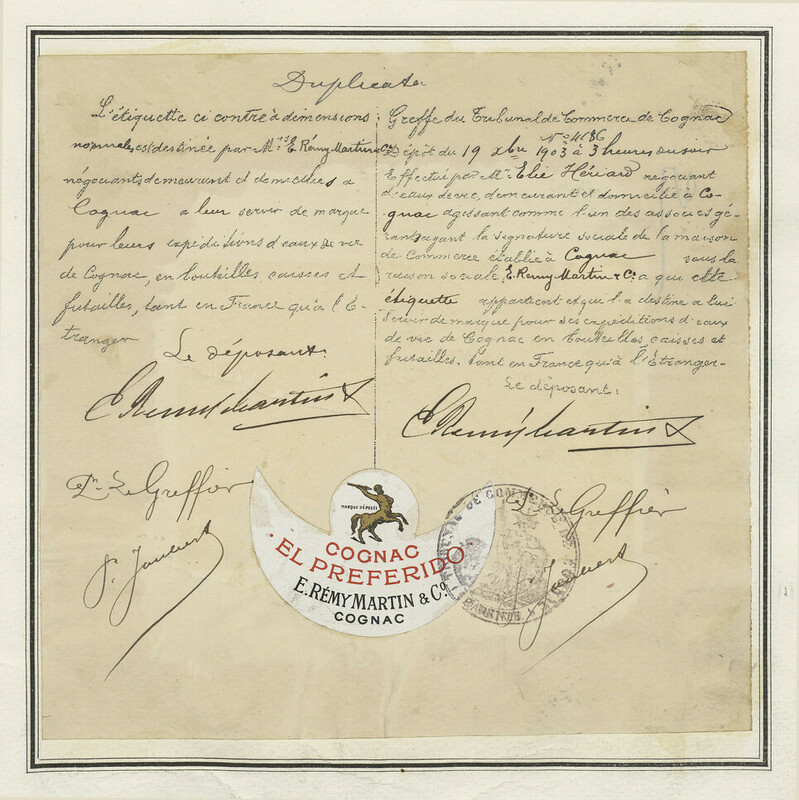 Duplicata
L'étiquette ci contre à dimensions
normales est destinée par M.rs E. Rémy Martin & Co
négociants demeurant et domiciliés à
Cognac à leur servir de marque
pour leurs expéditions d'eaux de vie
de Cognac, en bouteilles caisses et
futailles, tant en France qu'à l'É-
tranger
Le déposant
E. Remy Martin
Le Greffier
P. Joubert
Greffe du Tribunal de Commerce de Cognac
No 4186
Dépôt du 19 Xbre 1903 à 3 heures du soir
Effectué par Mr. Elie Hériard négociant
d'eaux de vie, demeurant et domicilié à Co-
gnac agissant comme l'un des associés gé-
rant ayant la signature sociale de la maison
de Commerce établie à Cognac sous la
raison sociale, E. Remy Martin & Co. a qui cette
étiquette appartient et qui l'a destine a lui
servir de marque pour ses expéditions d'eaux
de vie de Cognac en bouteilles, caisses et
futailles. Tant en France qu'à l'Étranger-
Le déposant:
E. Rémy Martin
Le Greffier
P. Joubert
MARQUE DÉPOSÉE
COGNAC
EL PREFERIDO
E. RÉMY MARTIN & Co.
COGNAC
TRIBUNAL DE COMMERCE DE COGNAC